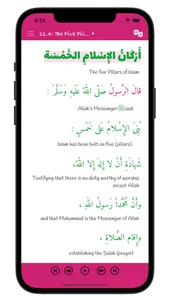 9:24
11.4: The Five Pil...
أَرْكَانُ الْإِسْلَامِ الْخَمْسَة
The five Pillars of Islam
قَالَ الرَّسُولُ صَلَّى اللَّهُ عَلَيْهِ وَسَلَّمَ
Allah's Messenger ﷺ said
بُنِيَ الْإِسْلَامُ عَلَى خَمْسٍ :
Islam has been built on five (pillars):
شَهَادَةُ أَنْ لَا إِلَهَ إِلَّا اللَّهُ،
Testifying that there is no deity worthy of worship
except Allah
وَأَنَّ مُحَمَّداً رَسُولُ اللَّهِ ،
and that Muhammad is the Messenger of Allah
وَإِقَامِ الصَّلَاةِ ،
establishing the Salah (prayer)